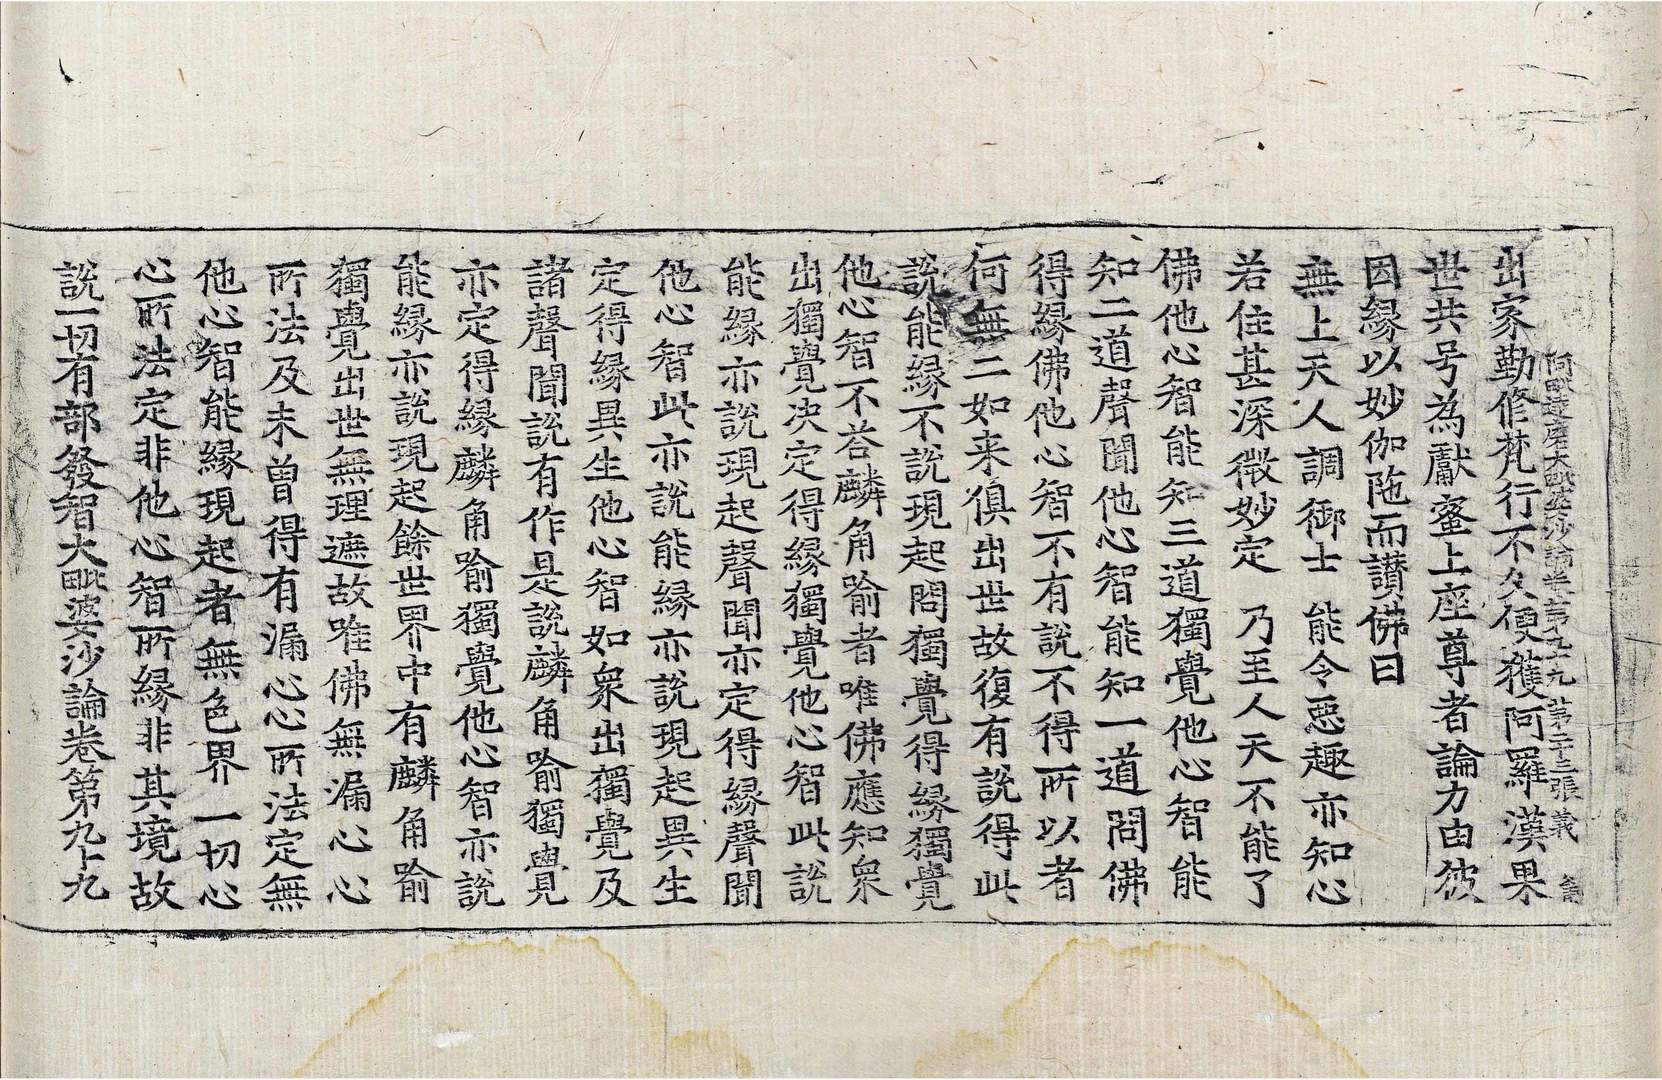 阿毗達磨大毗婆沙論卷第九十九 第二十三張 義
出家勤修梵行不久便獲阿羅漢果
世共号為獻蜜上座尊者論力由彼
因緣以妙伽陁而讃佛曰
無上天人調御士 能令惡趣亦知心
若住甚深微妙定 乃至人天不能了
佛他心智能知三道獨覺他心智能
知二道聲聞他心智能知一道問佛
得緣佛他心智不有說不得所以者
何無二如来俱出世故復有說得此
說能緣不說現起問獨覺得緣獨覺
他心智不荅麟角喻者唯佛應知衆
出獨覺决定得緣獨覺他心智此說
能緣亦說現起聲聞亦定得緣聲聞
他心智此亦說能緣亦說現起異生
定得緣異生他心智如衆出獨覺及
諸聲聞說有作是說麟角喻獨覺
亦定得緣麟角喻獨覺他心智亦說
能緣亦說現起餘世界中有麟角喻
獨覺出世無理遮故唯佛無漏心心
所法及未曾得有漏心心所法定無
他心智能緣現起者無色界一切心
心所法定非他心智所緣非其境故
說一切有部發智大毗婆沙論卷第九十九